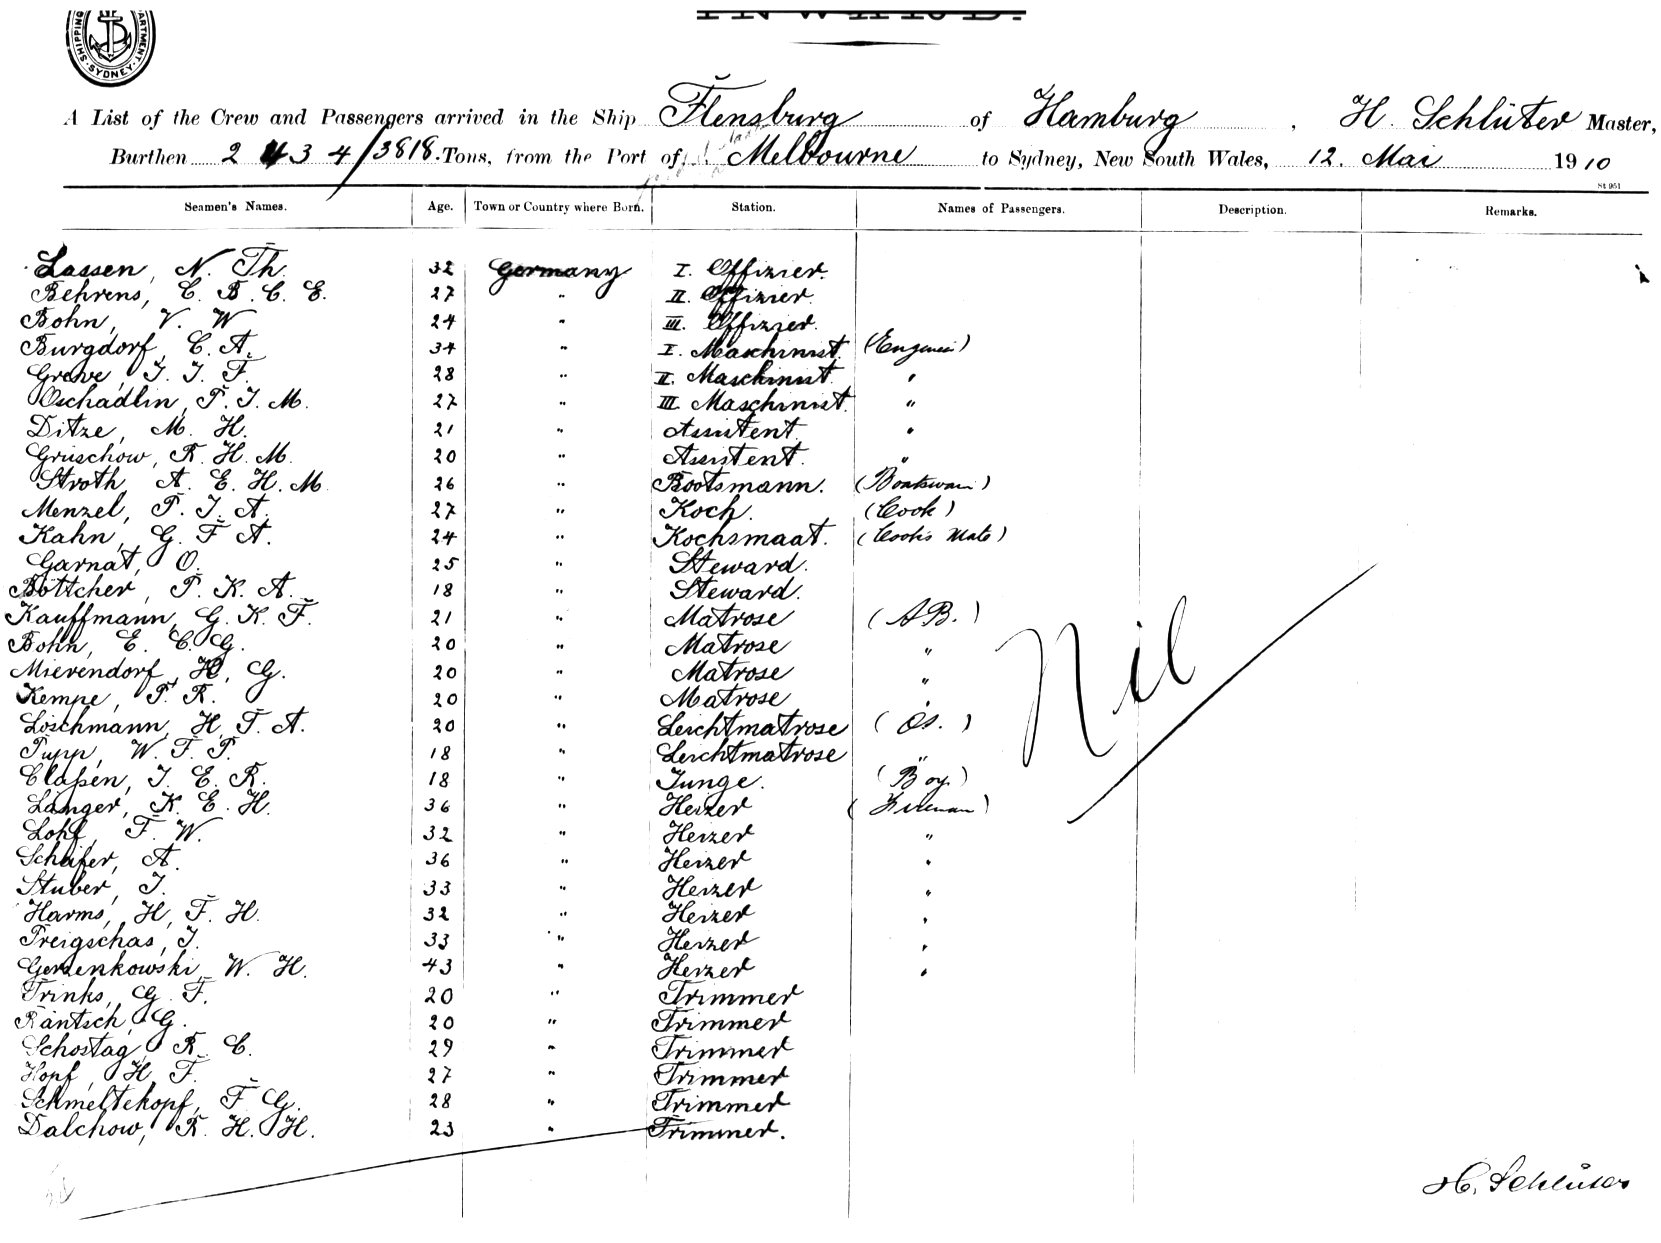 SHIPPING DEPARTMENT. SYDNEY.
INWARD.
A List of the Crew and Passengers arrived in the Ship Flensburg of Hamburg, H. Schlüter Master,
Burthen 2434/3818 Tons, from the Port of Melbourne to Sydney, New South Wales, 12. Mai 1910
St 951
Seamen's Names. Age. Town or Country where Born. Station. Names of Passengers. Description. Remarks.
Lassen, N. Th. 32 Germany I. Offizier.
Behrens, C. B. C. E. 27 " II. Offizier.
Bohn, V. W 24 " III. Offizier.
Burgdorf, C. A. 34 " I. Maschinist. (Engineer)
Greve, J. J. F. 28 " II. Maschinist. "
Oschadlin, P. J. M. 27 " III. Maschinist. "
Ditze, M. H. 21 " Assistent. "
Gruschow, R. H. M. 20 " Assistent. "
Stroth, A. E. H. M. 26 " Bootsmann. (Boatswain)
Menzel, P. J. A. 27 " Koch. (Cook)
Kahn, G. F. A. 24 " Kochsmaat. (Cook's Mate)
Garnat, O. 25 " Steward.
Böttcher, P. K. A. 18 " Steward.
Kauffmann, G. K. F. 21 " Matrose (AB.)
Bohn, E. C. G. 20 " Matrose "
Mierendorf, H, G. 20 " Matrose "
Kempe, P. R. 20 " Matrose "
Löschmann, H. F. A. 20 " Leichtmatrose (OS.)
Pupp, W. F. P. 18 " Leichtmatrose "
Claßen, J. E. R. 18 " Junge. (Boy.)
Langer, K. E. H. 36 " Heizer (Fireman)
Lohf, F. W. 32 " Heizer "
Schäfer, A. 36 " Heizer "
Stuber, J. 33 " Heizer "
Harms, H, F. H. 32 " Heizer "
Preigschas, J. 33 " Heizer "
Gerzenkowski, W. H. 43 " Heizer "
Trinks, G. F. 20 " Trimmer
Räntsch, G. 20 " Trimmer
Schostag, R. C. 29 " Trimmer
Hopf, H. F. 27 " Trimmer
Schmeltekopf, F. G. 28 " Trimmer
Dalchow, R. H. H. 23 " Trimmer.
Nil
H. Schlüter